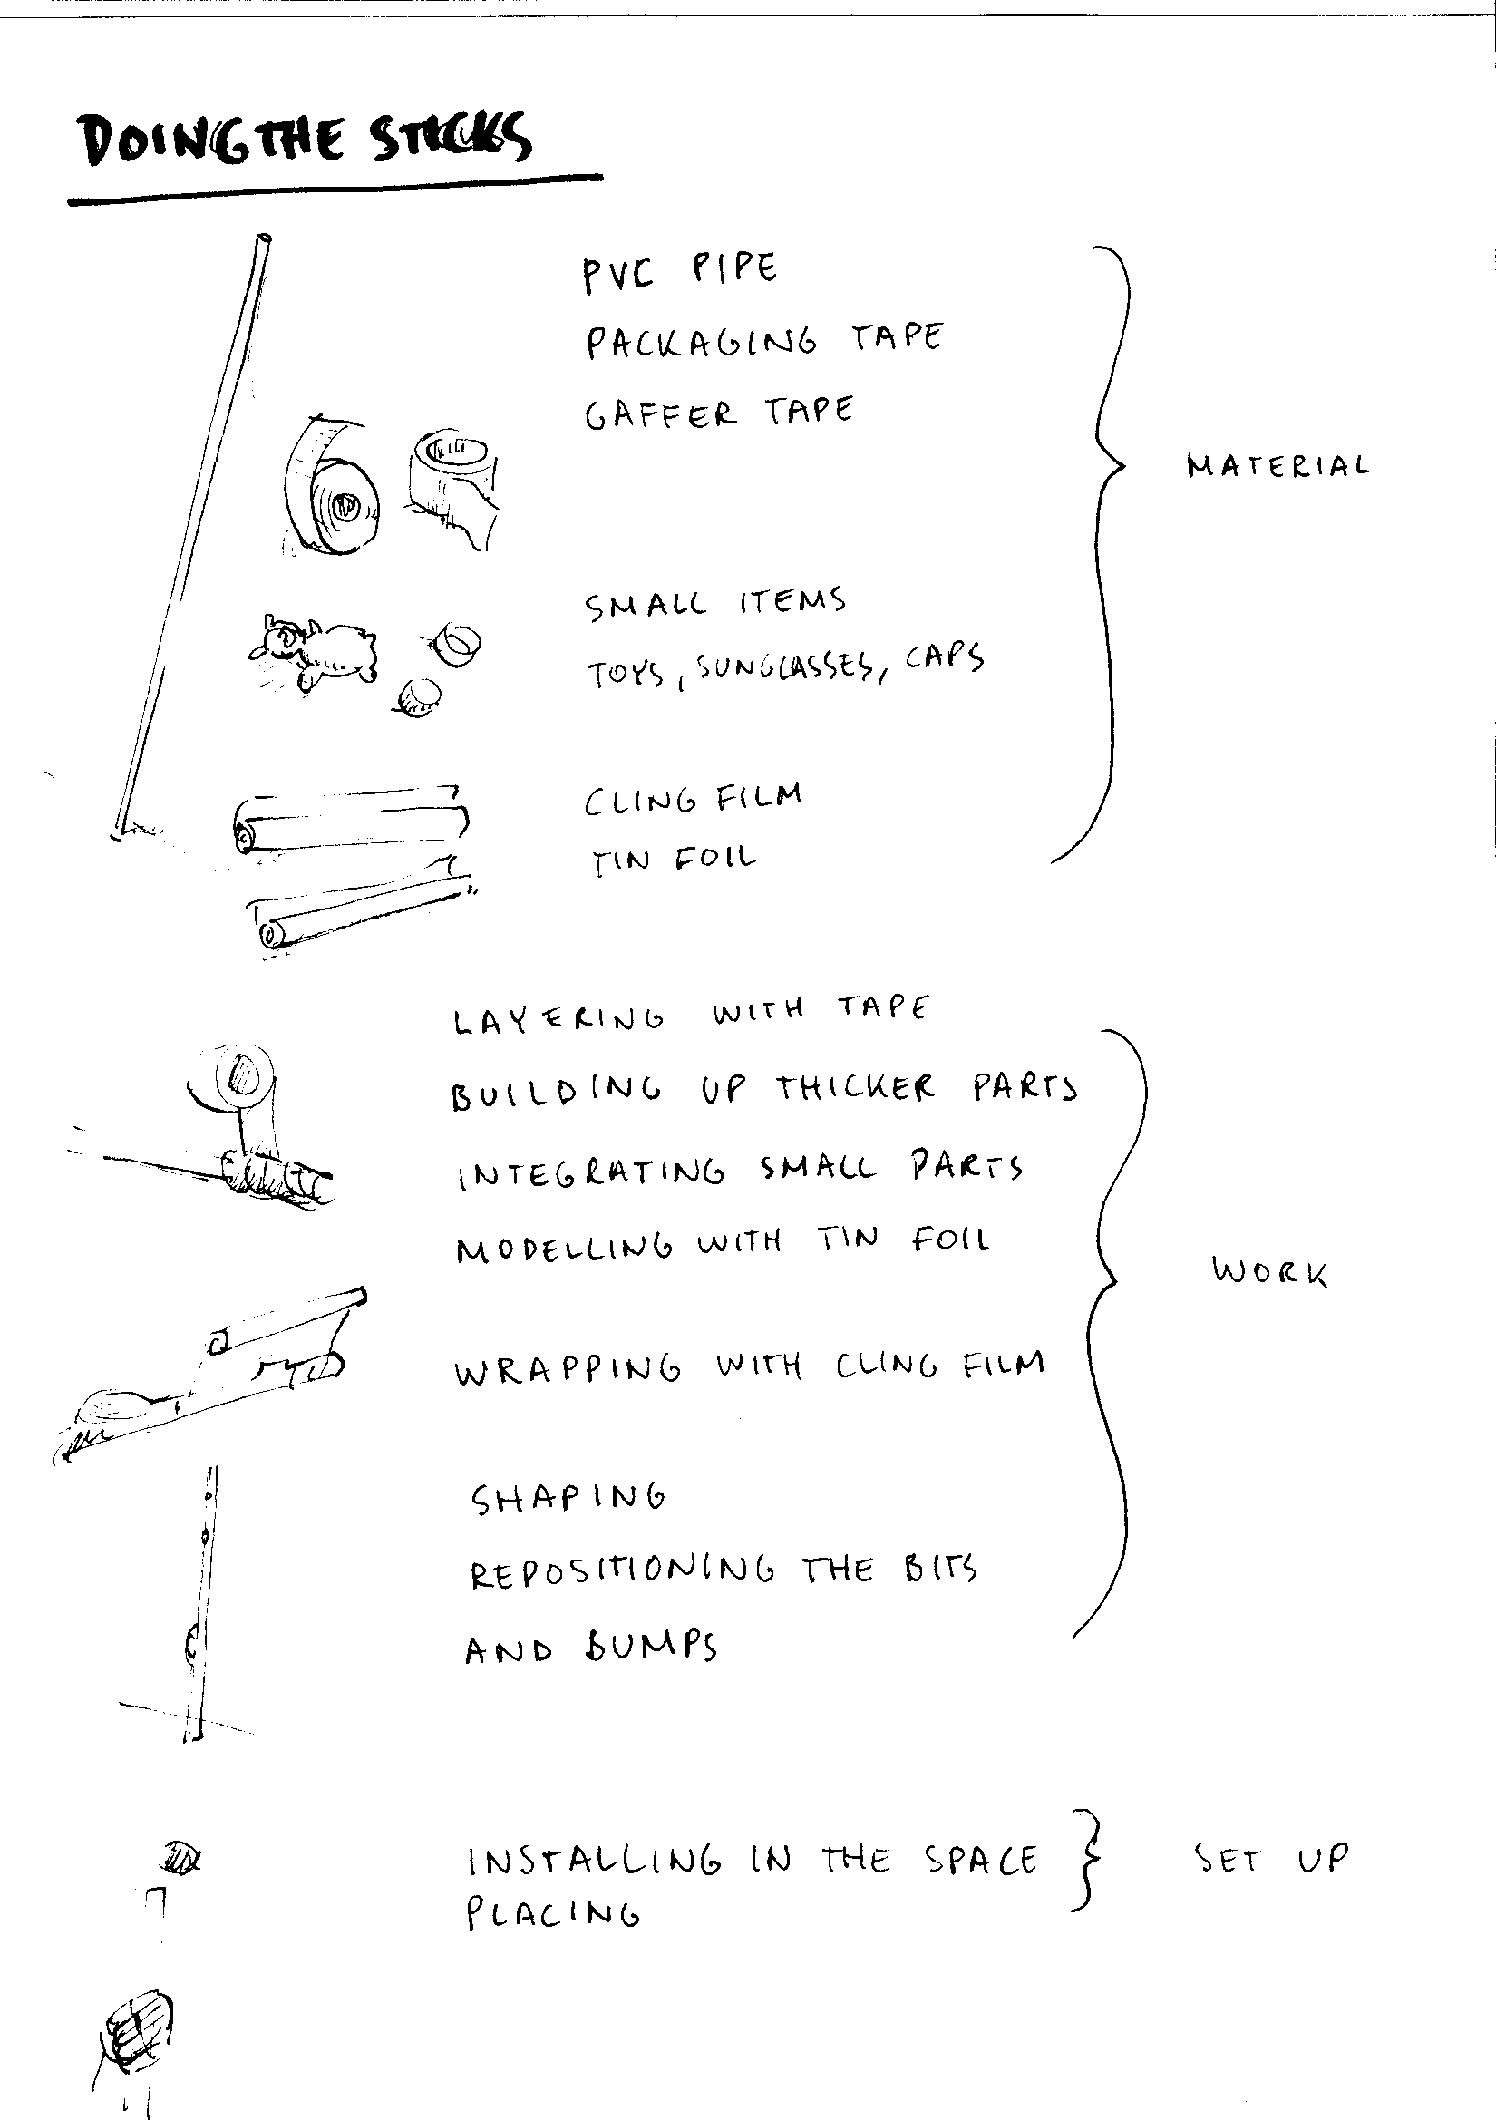 DOING THE STICKS
PVC PIPE
PACKAGING TAPE
GAFFER TAPE
MATERIAL
SMALL ITEMS
TOYS, SUNGLASSES, CAPS
CLING FILM
TIN FOIL
LAYERING WITH TAPE
BUILDING UP THICKER PARTS
INTEGRATING SMALL PARTS
MODELLING WITH TIN FOIL
WORK
WRAPPING WITH CLING FILM
SHAPING
REPOSITIONING THE BITS
AND BUMPS
INSTALLING IN THE SPACE
SET UP
PLACING